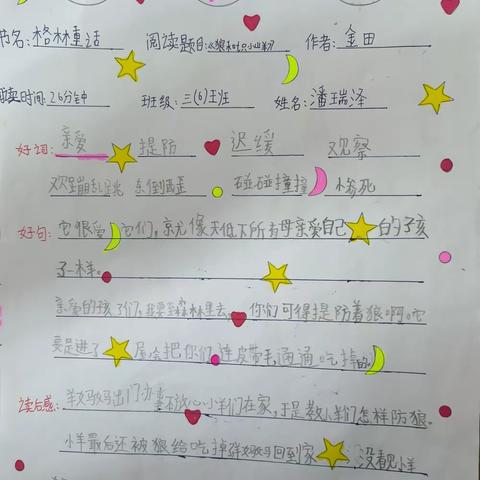 书名:格林童话 阅读题目:狼和七只小山羊 作者:金田
阅读时间:26分钟 班级:三(6)班 姓名:潘瑞泽
好词:亲爱 提防 迟缓 观察
欢蹦乱跳 东倒西歪 碰碰撞撞 惨死
好句:它很爱它们,就像天底下所有母亲爱自己的孩
子一样。
亲爱的孩子们,我要到森林里去。你们可得提防着狼啊。它
要是进了屋会把你们连皮带毛,通通吃掉的。
读后感:羊妈妈出门办事不放心小羊们在家,于是教小羊们怎样防狼。
小羊最后还被狼给吃掉 妈妈回到家 没看见小羊